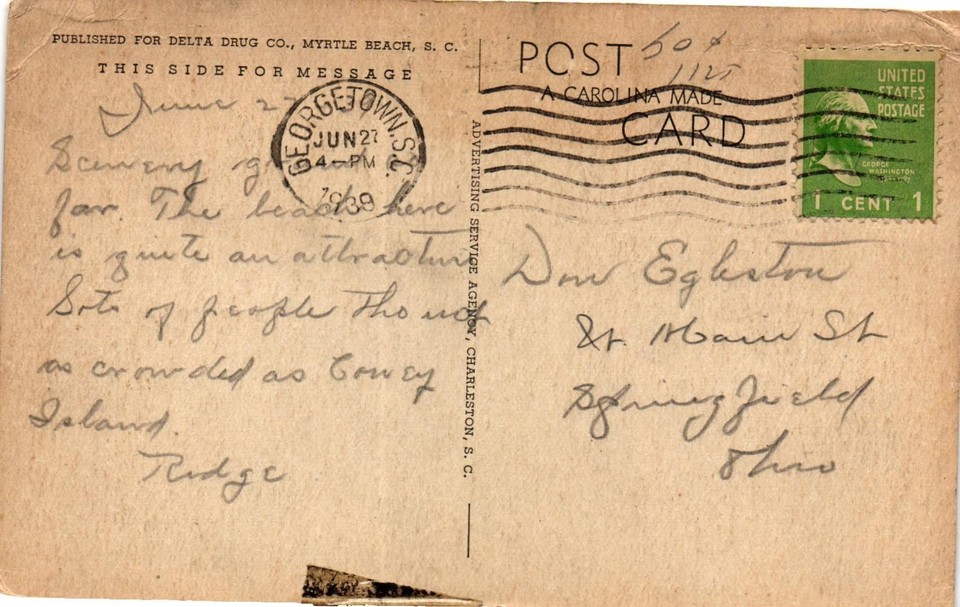 PUBLISHED FOR DELTA DRUG CO., MYRTLE BEACH, S. C.
THIS SIDE FOR MESSAGE
June 27
Scenery
far. The beach here
is quite an attraction
Lots of people tho not
as crowded as Coney
Island.
Ridge
GEORGETOWN, S.C.
JUN 27
4-PM
1939
ADVERTISING SERVICE AGENCY, CHARLESTON, S. C.
POST
A CAROLINA MADE
CARD
60¢
1125
UNITED
STATES
POSTAGE
GEORGE
WASHINGTON
1 CENT 1
Don Egleston
St. Main St
Springfield
Ohio